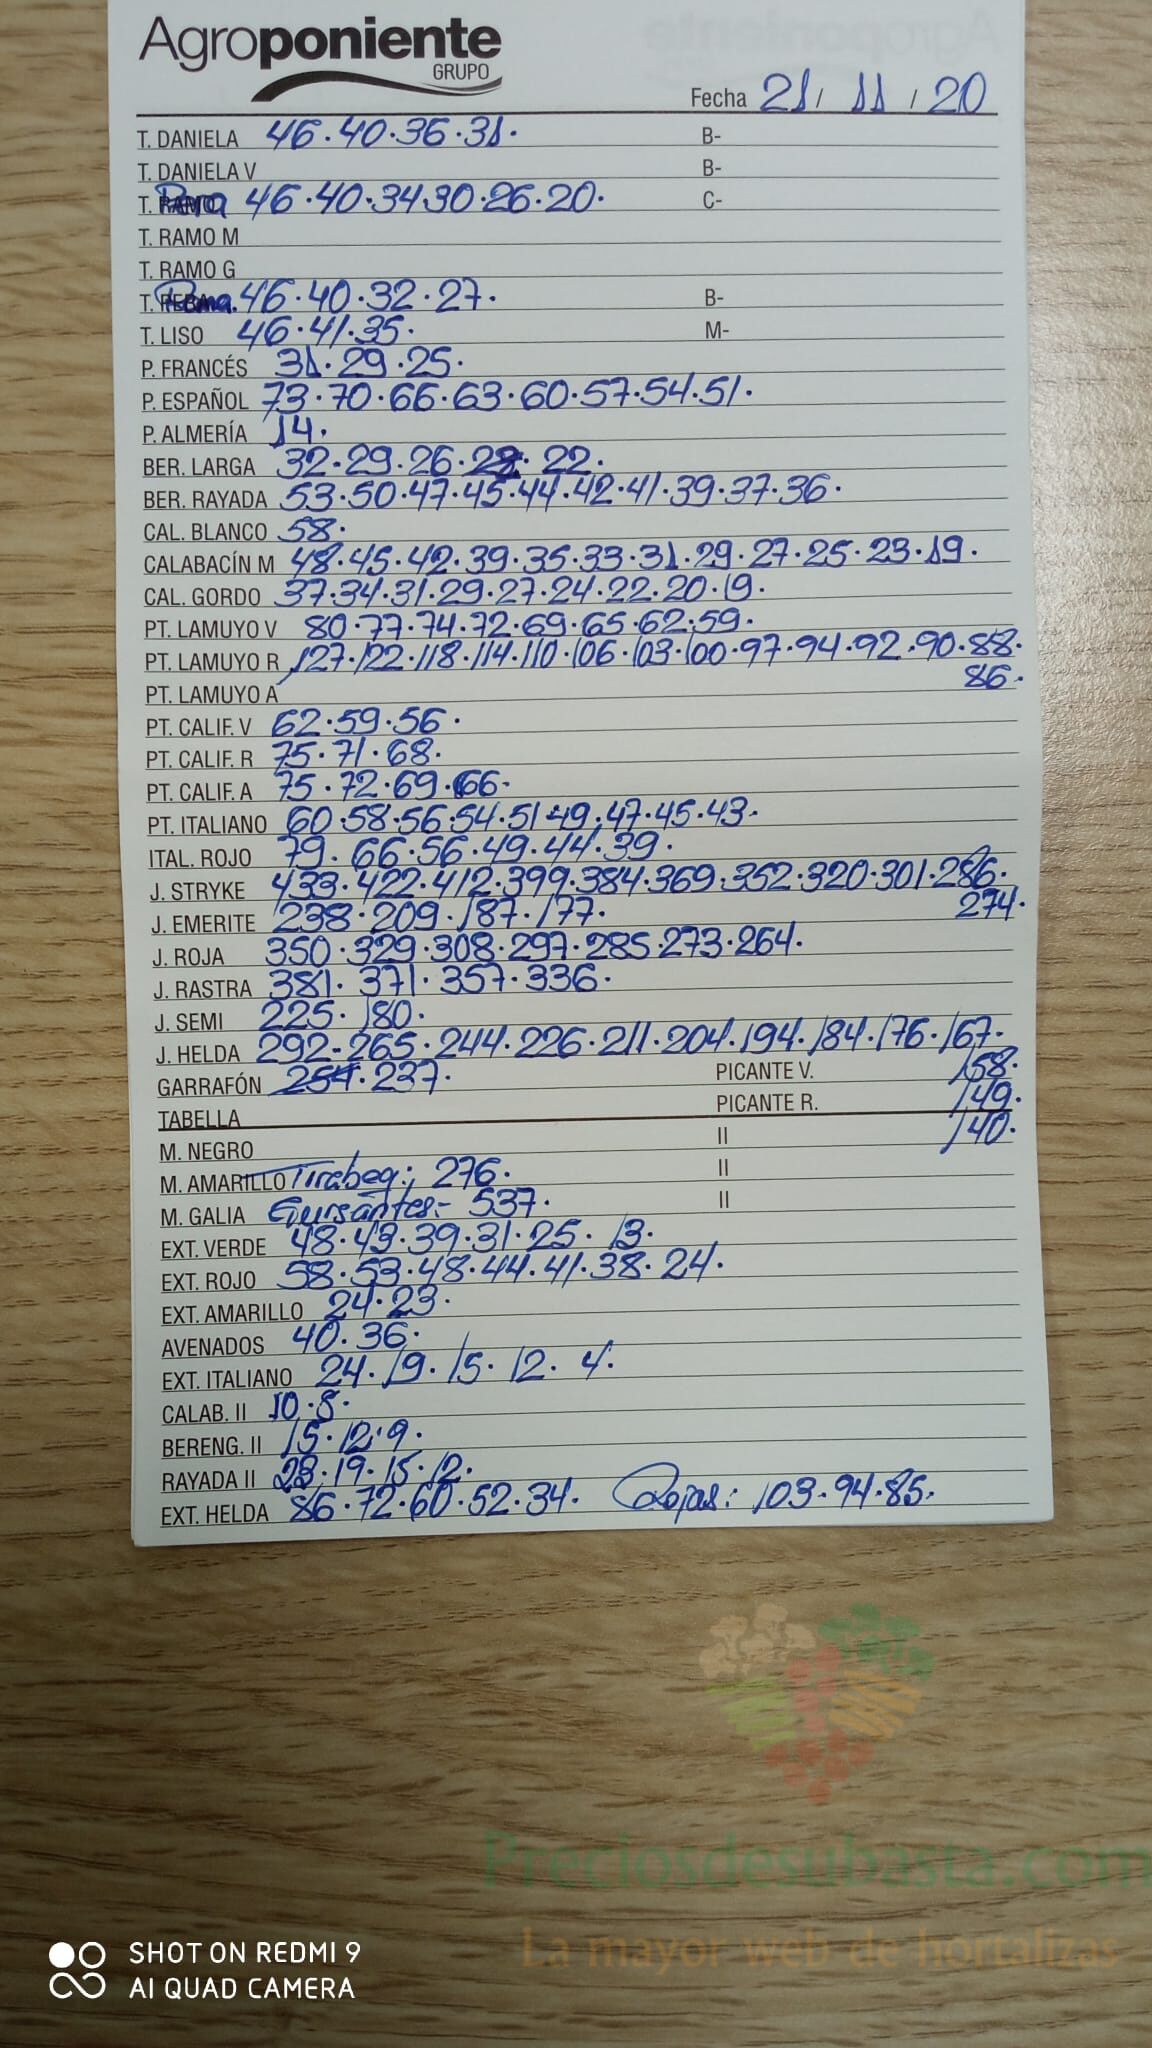 Agroponiente
GRUPO
Fecha 21 / 11 / 20
T. DANIELA 46.40.36.31. B-
T. DANIELA V B-
T. Pera 46.40.34.30.26.20. C-
T. RAMO M
T. RAMO G
T. Rama. 46.40.32.27. B-
T. LISO 46.41.35. M-
P. FRANCÉS 31.29.25.
P. ESPAÑOL 73.70.66.63.60.57.54.51.
P. ALMERÍA 14.
BER. LARGA 32.29.26. 22.
BER. RAYADA 53.50.47.45.44.42.41.39.37.36.
CAL. BLANCO 58.
CALABACÍN M 48.45.42.39.35.33.31.29.27.25.23.19.
CAL. GORDO 37.34.31.29.27.24.22.20.19.
PT. LAMUYO V 80.77.74.72.69.65.62.59.
PT. LAMUYO R 127.122.118.114.110.106.103.100.97.94.92.90.88.
PT. LAMUYO A 86.
PT. CALIF. V 62.59.56.
PT. CALIF. R 75.71.68.
PT. CALIF. A 75.72.69.66.
PT. ITALIANO 60.58.56.54.51.49.47.45.43.
ITAL. ROJO 79.66.56.49.44.39.
J. STRYKE 433.422.412.399.384.369.352.320.301.286.
J. EMERITE 238.209.187.177. 274.
J. ROJA 350.329.308.297.285.273.264.
J. RASTRA 381.371.357.336.
J. SEMI 225.180.
J. HELDA 292.265.244.226.211.204.194.184.176.167.
GARRAFÓN 254.237. PICANTE V. 158.
TABELLA PICANTE R. 149.
M. NEGRO II 140.
M. AMARILLO Tirabeq: 276. II
M. GALIA Guisantes:- 537. II
EXT. VERDE 48.43.39.31.25.13.
EXT. ROJO 58.53.48.44.41.38.24.
EXT. AMARILLO 24.23.
AVENADOS 40.36.
EXT. ITALIANO 24.19.15.12.4.
CALAB. II 10.8.
BERENG. II 15.12.9.
RAYADA II 23.19.15.12.
EXT. HELDA 86.72.60.52.34. Rojas: 103.94.85.
Preciosdesubasta.com
La mayor web de hortalizas
SHOT ON REDMI 9
AI QUAD CAMERA